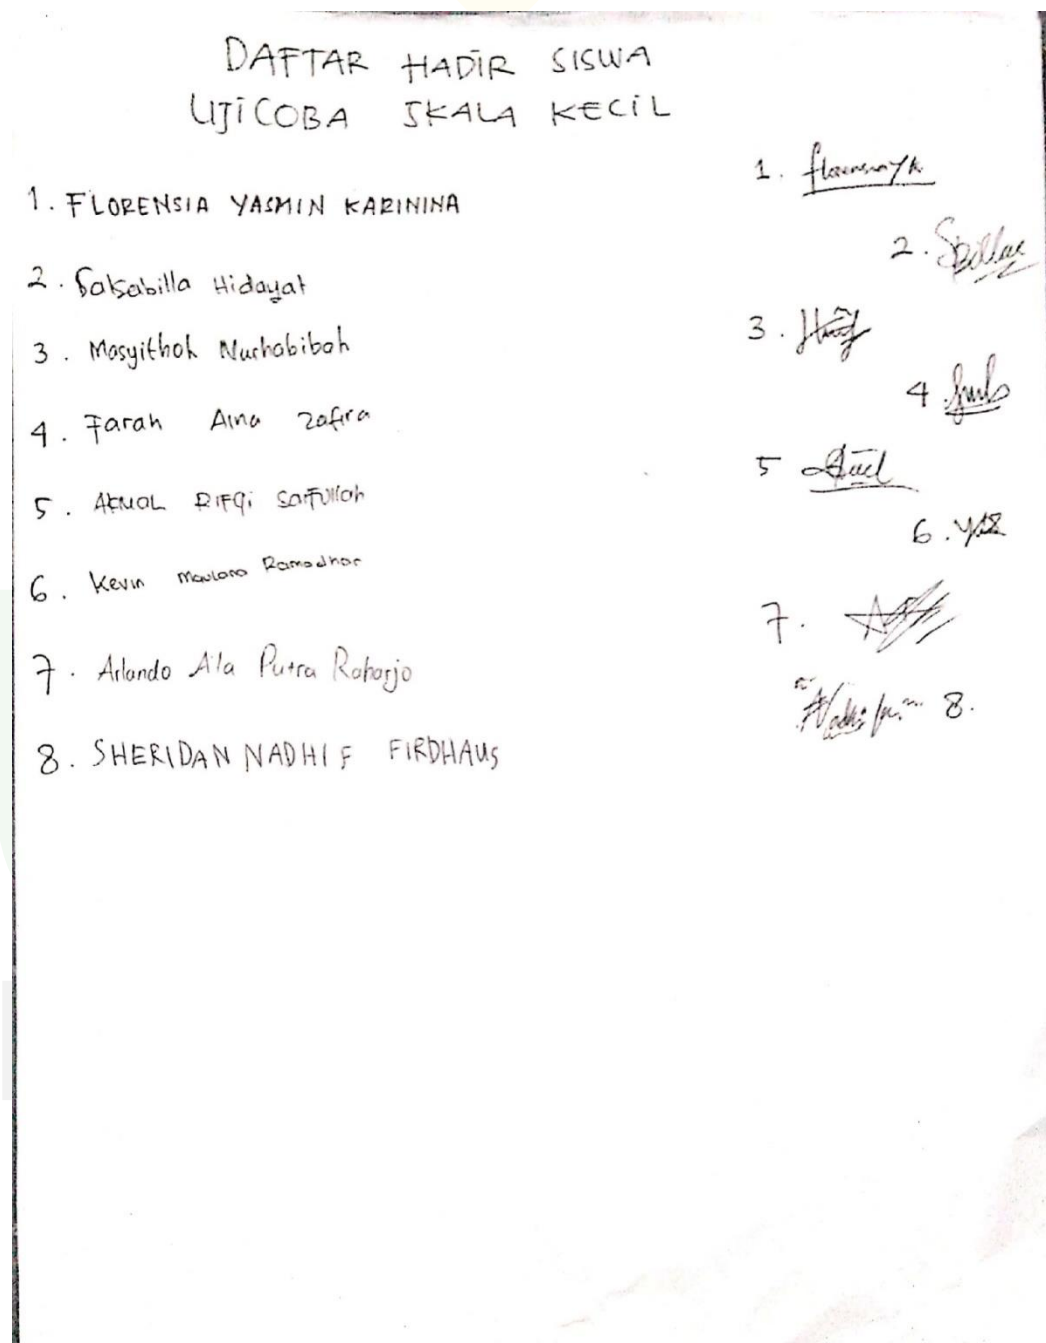 DAFTAR HADIR SISWA
UJICOBA SKALA KECIL
1. FLORENSIA YASMIN KARININA
2. Salsabilla Hidayat
3. Masyithoh Nurhabibah
4. Farah Aina Zafira
5. AKMAL RIFQi Saifullah
6. Kevin Maulana Ramadhan
7. Arlando A'la Putra Raharjo
8. SHERIDAN NADHIF FIRDHAUS
1.
2.
3.
4
5
6.
7.
8.